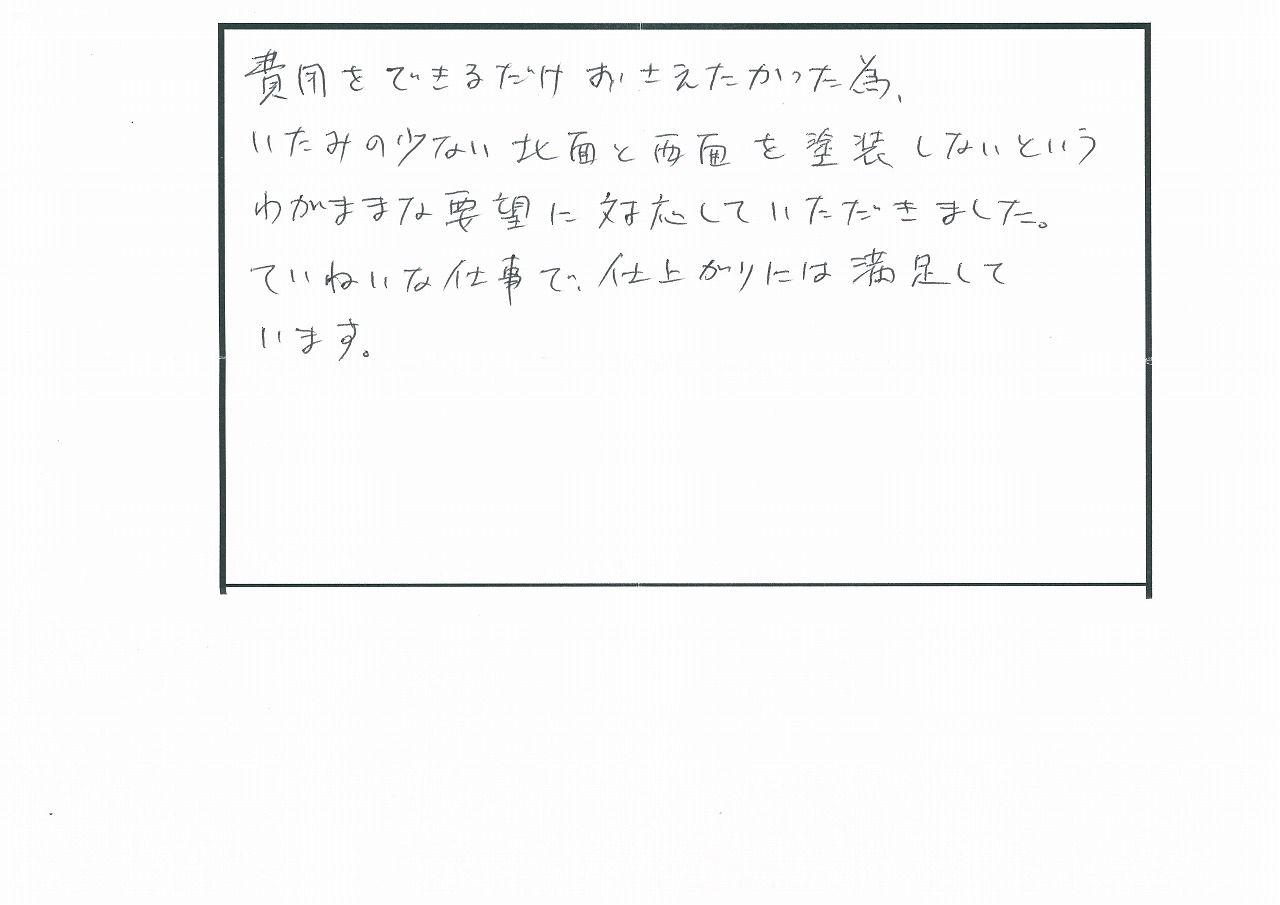 費用をできるだけおさえたかった為、
いたみの少ない北面と西面を塗装しないという
わがままな要望に対応していただきました。
ていねいな仕事で、仕上がりには満足して
います。